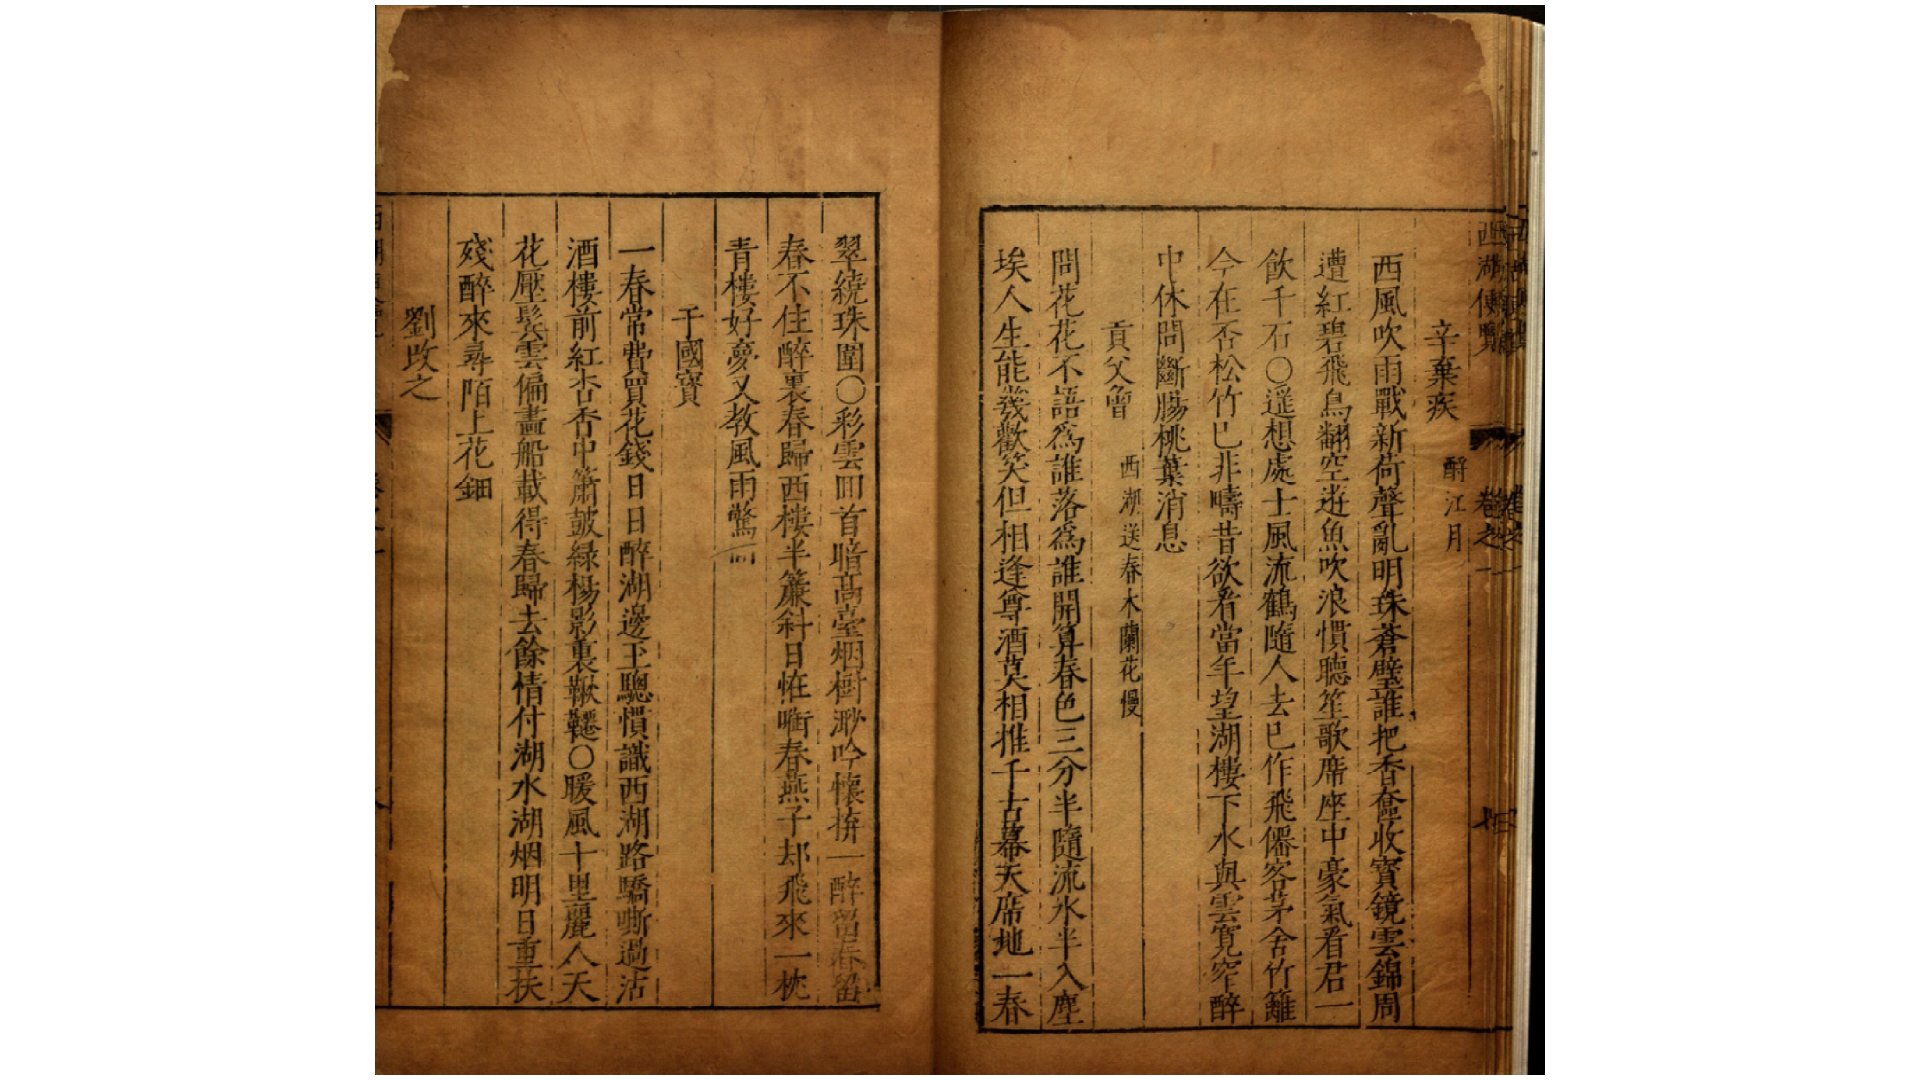 西湖便覽 卷之一
辛棄疾 酹江月
西風吹雨戰新荷聲亂明珠蒼璧誰把香奩收寶鏡雲錦周
遭紅碧飛鳥翻空遊魚吹浪慣聽笙歌席座中豪氣看君一
飲千石〇遥想處士風流鶴隨人去已作飛僊客茅舍竹籬
今在否松竹已非疇昔欲看當年望湖樓下水與雲寬窄醉
中休問斷腸桃葉消息
貢父曾 西湖送春木蘭花慢
問花花不語爲誰落爲誰開算春色三分半隨流水半入塵
埃人生能幾歡笑但相逢尊酒莫相推千古幕天席地一春
翠繞珠圍〇彩雲囬首暗高臺烟樹渺吟懷拚一醉留春留
春不住醉裏春歸西樓半簾斜日恠啣春燕子却飛來一枕
青樓好夢又教風雨驚囬
于國寶
一春常費買花錢日日醉湖邊玉驄慣識西湖路驕嘶過沽
酒樓前紅杏香中簫皷緑楊影裏鞦韆〇暖風十里麗人天
花壓鬂雲偏畫船載得春歸去餘情付湖水湖烟明日重扶
殘醉來尋陌上花鈿
劉改之